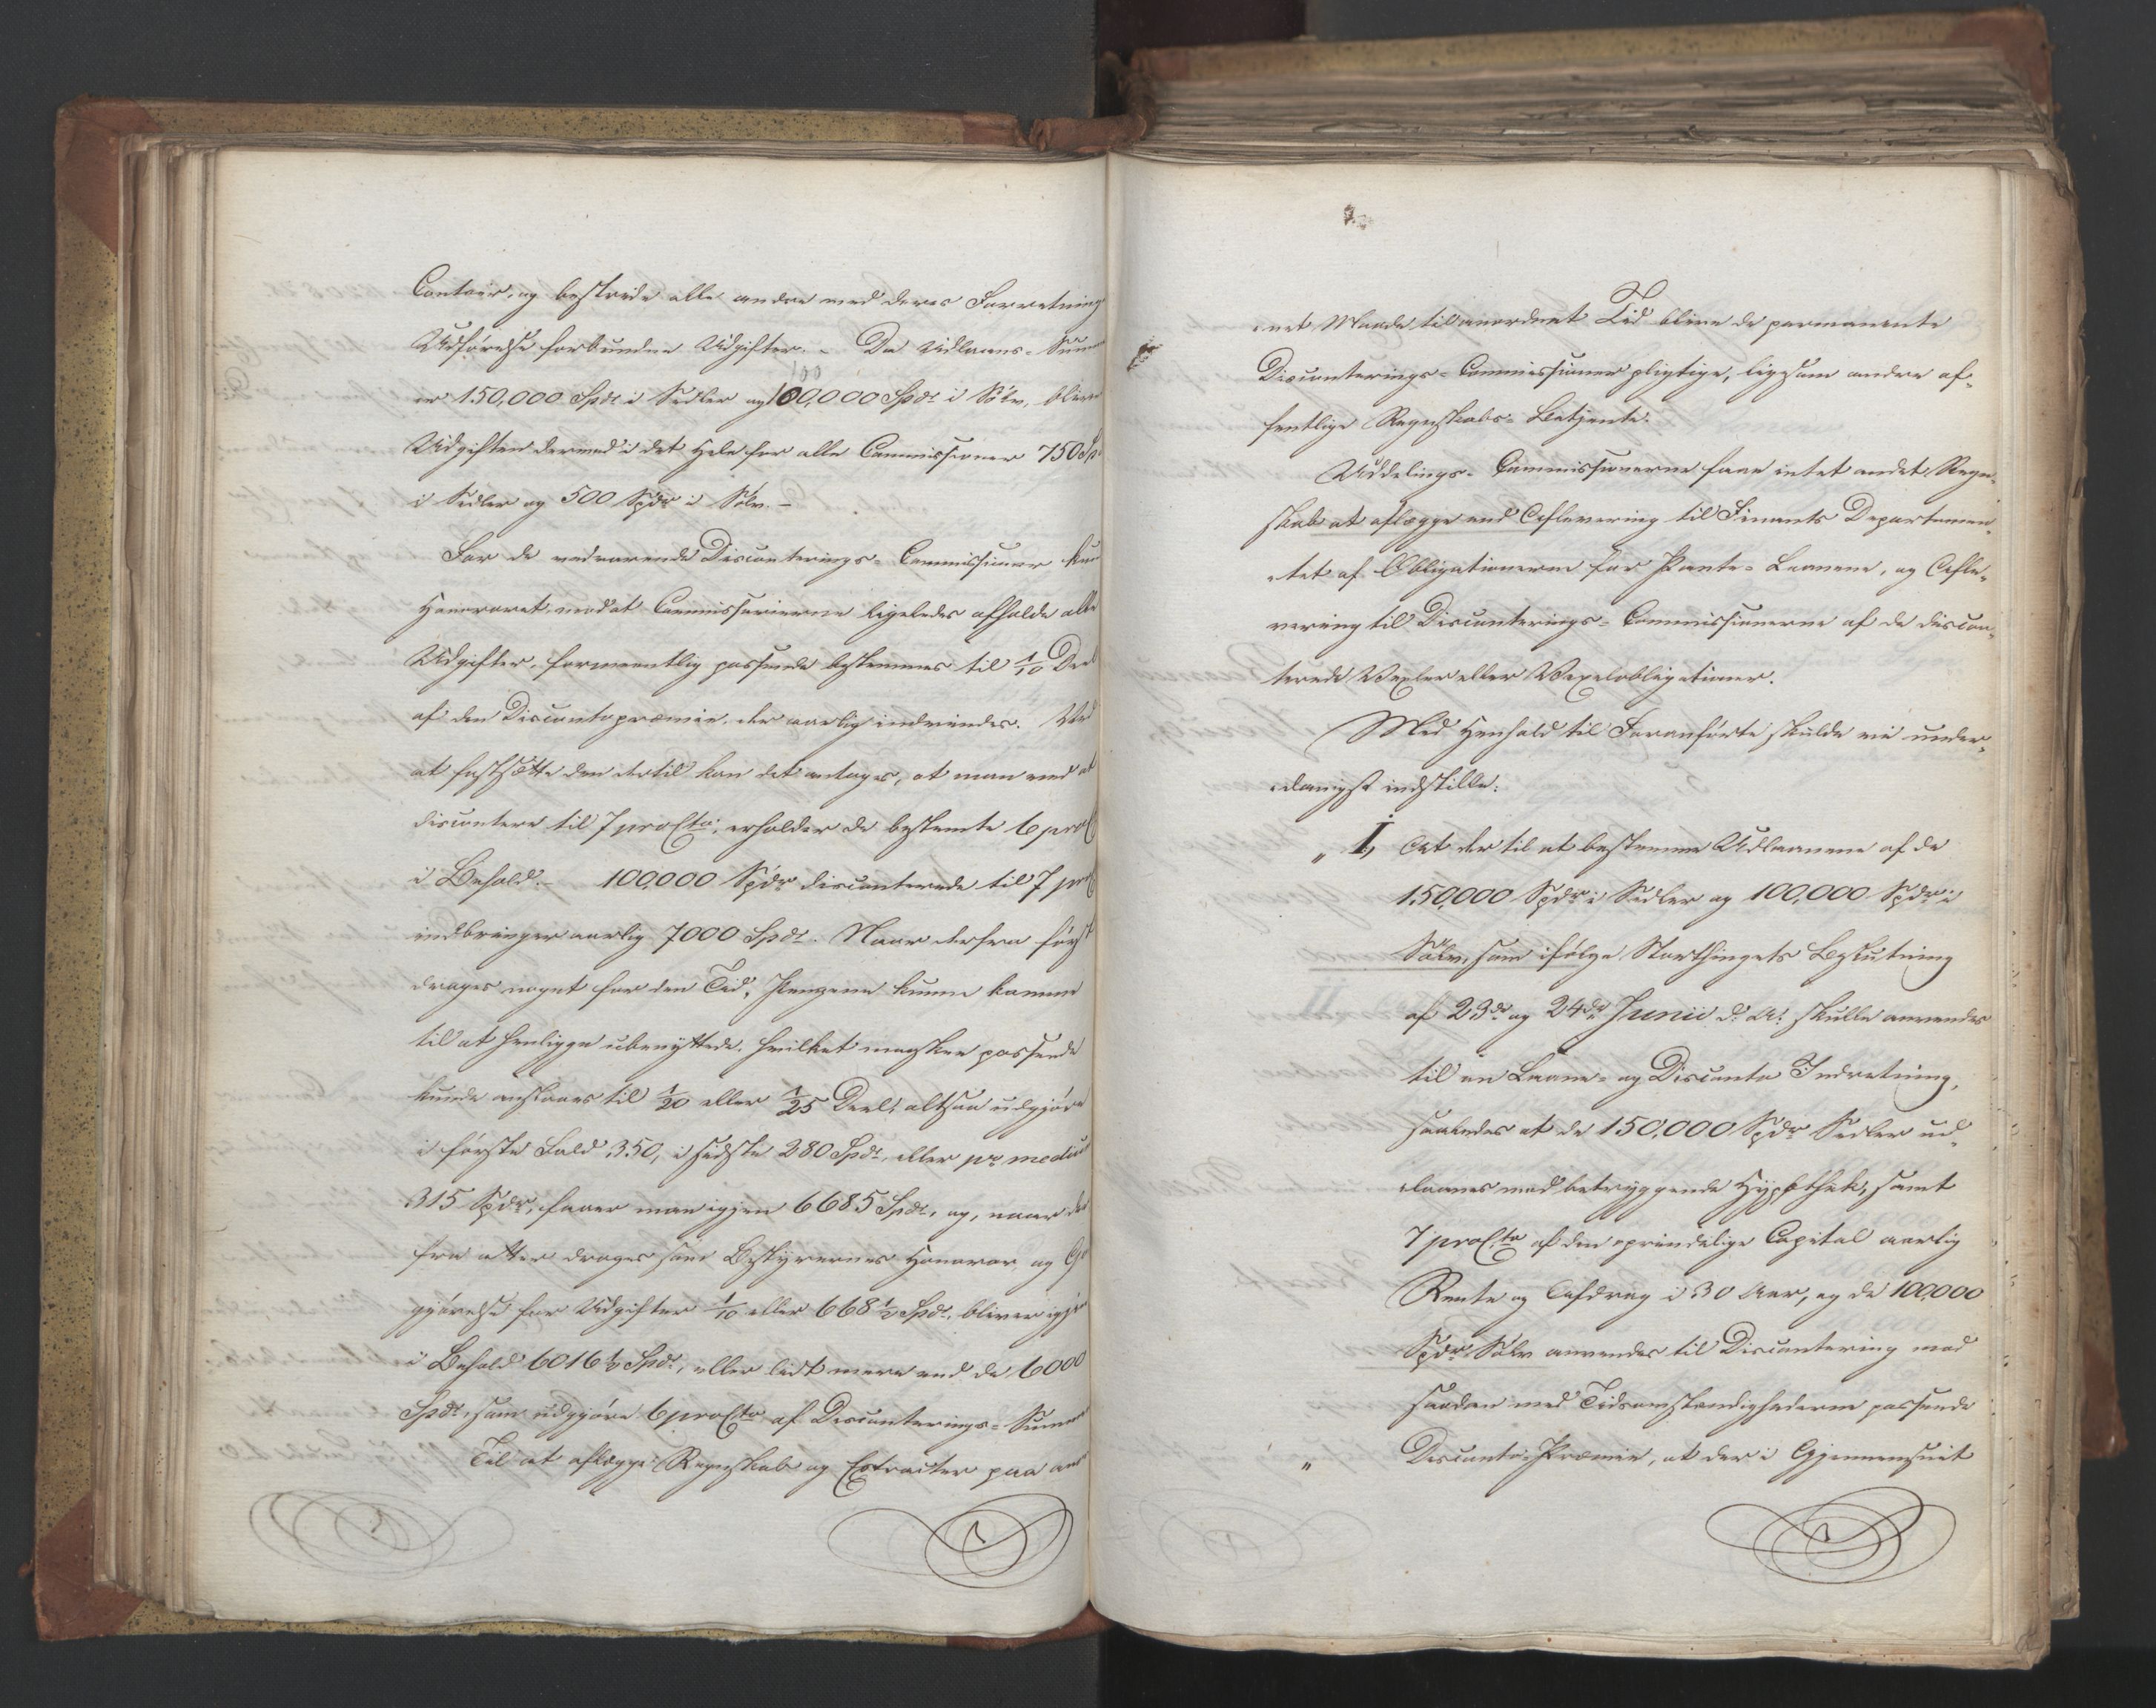 Contoir, og bestride alle andre med deres Forretnings
Udførelse forbundne Udgifter. - Da Udlaans-Summen
100
er 150,000 Spdr i Sedler og 100,000 Spdr i Sølv, bliver
Udgiften dermed i det Hele for alle Commissioner 750 Sp
i Sedler og 500 Spdr i Sølv. -
For de vedvarende Disconterings-Commissioner kun
Honoraret, mod at Commissairerne ligeledes afholde alle
Udgifter, formeentlig passende bestemmes til 1/10 Deel
af den Discontopræmie, der aarlig indvindes. Ved
at fastsætte den dertil kan det antages, at man ved at
discontere til 7 proCto, erholder de bestemte 6 proC
i Behold. - 100,000 Spdr disconterede til 7 proC
indbringer aarlig 7000 Spdr. Naar derfra først
drages noget for den Tid, Pengene kunne komme
til at henligge ubenyttede, hvilket maaskee passende
kunde anslaaes til 1/20 eller 1/25 Deel, altsaa udgjøre
i første Fald 350, i sidste 280 Spdr, eller pr medium
315 Spdr, faaer man igjen 6685 Spdr, og, naar der
fra atter drages som Bestyrernes Honorar og Go
gjørelse for Udgifter 1/10 eller 668 1/2 Spdr, bliver igjen
i Behold 6016 1/2 Spdr, eller lidt mere end de 6000
Spdr, som udgjøre 6 proCto af Disconterings-Summen
Til at aflægge Regnskab og Extracter paa an
net Maade til anordnet Tid blive de permanente
Disconterings-Commissioner pligtige, ligesom andre of-
fentlige Regnskabs-Betjente.
Uddelings-Commissionerne faae intet andet Regn-
skab at aflægge end Aflevering til Finants Departemen-
tet af Obligationerne for Pante-Laanene, og Afle-
vering til Disconterings-Commissionerne af de discon-
terede Vexler eller Vexelobligationer.
Med Henhold til Foranførte skulde vi under-
danigst indstille:
„ I, At der til at bestemme Udlaanene af de
150,000 Spdr i Sedler og 100,000 Spdr i
Sølv, som ifølge Storthingets Beslutning
af 23de og 24de Junii d. A. skulle anvendes
til en Laane- og Disconto Indretning,
saaledes at de 150,000 Spdr Sedler ud-
laanes mod betryggende Hypothek, samt
7 proCto af den oprindelige Capital aarlig
Rente og Afdrag i 30 Aar, og de 100,000
Spdr Sølv anvendes til Discontering mod
saadan med Tidsomstændighederne passende
„ Disconto-Præmie, at der i Gjennemsnit